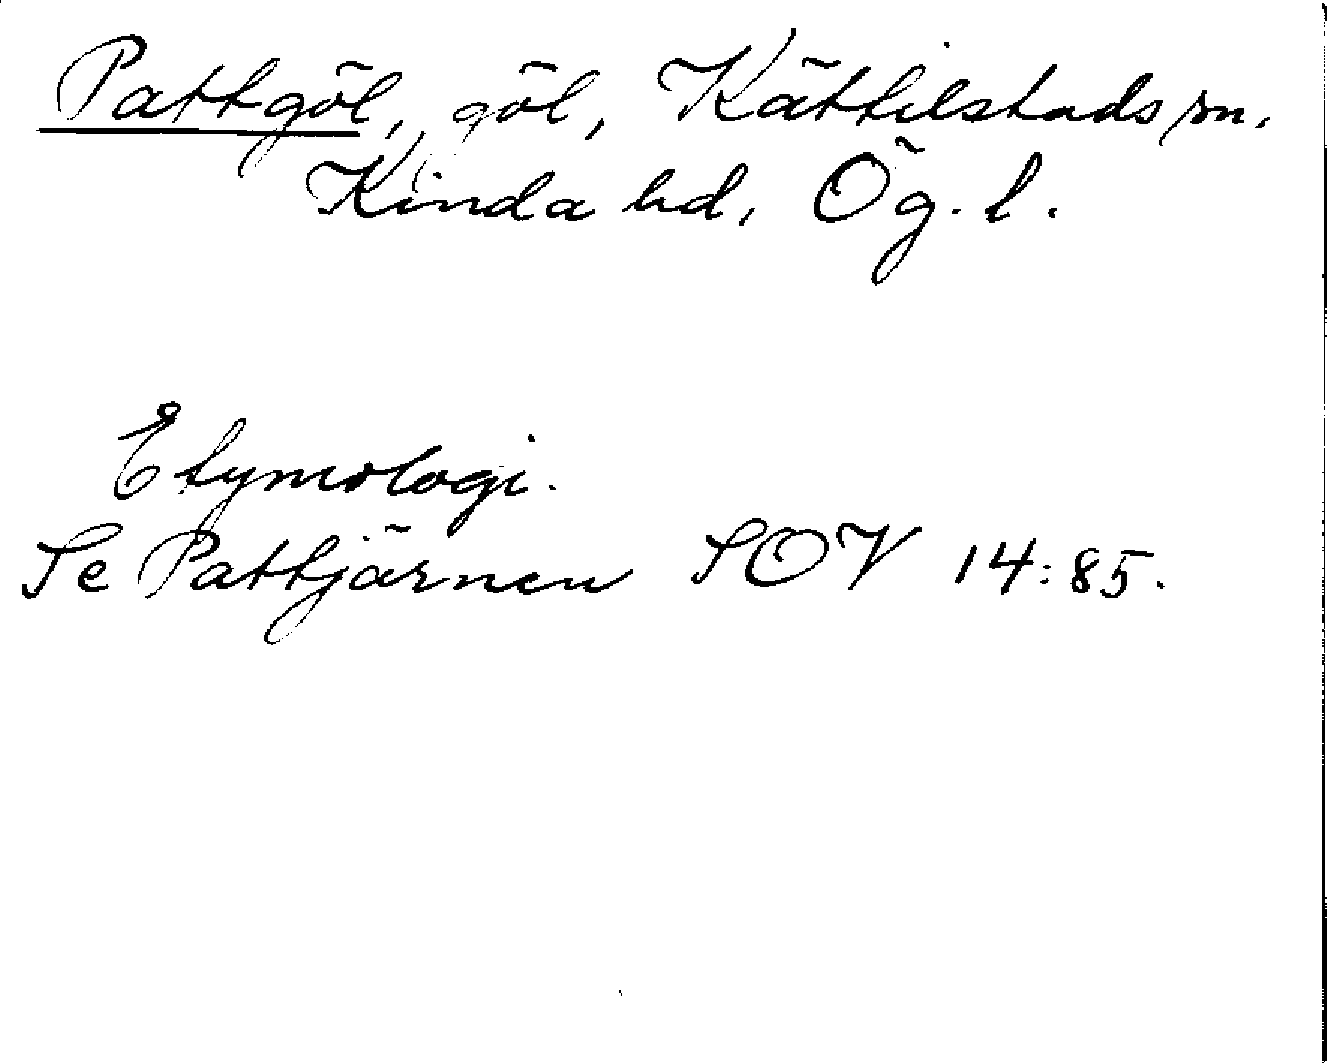 Pattgöl, göl, Kättilstads sn.
Kinda hd, Ög. l.
Etymologi.
Se Pattjärnen SOV 14:85.